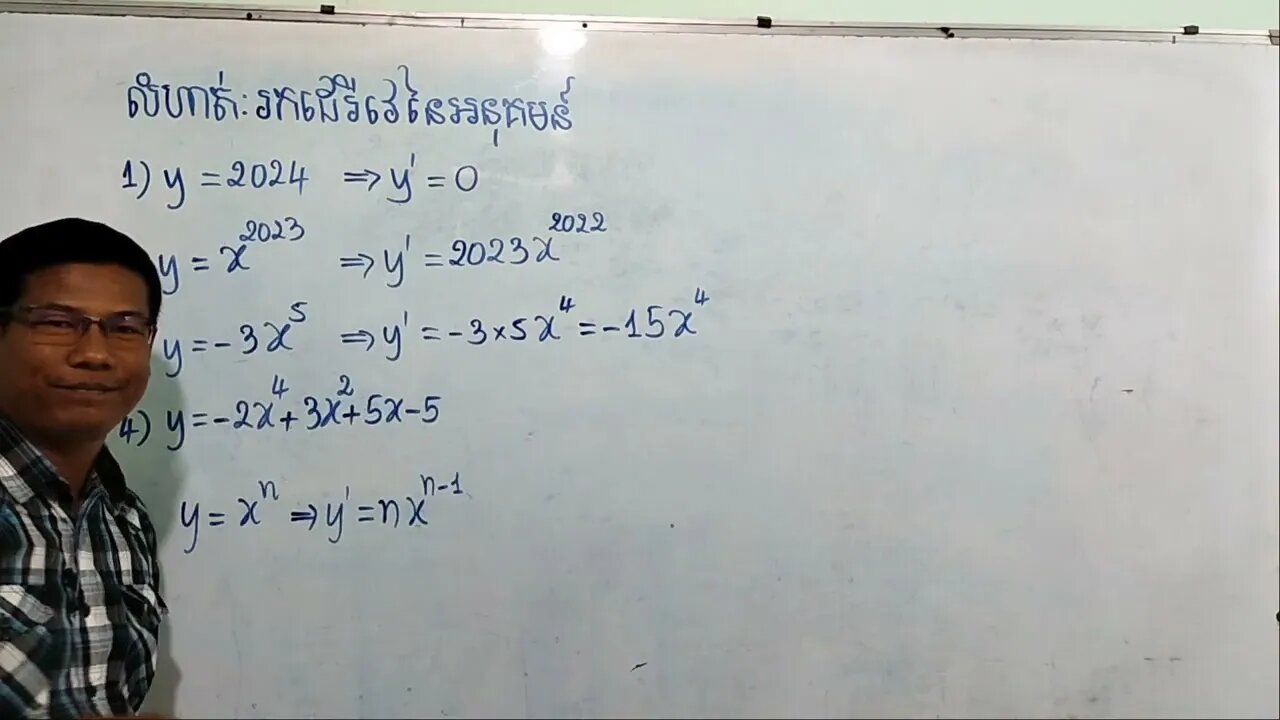 លំហាត់: រកដេរីវេនៃអនុគមន៍
1) y = 2024 ⇒ y' = 0
y = x²⁰²³ ⇒ y' = 2023x²⁰²²
y = -3x⁵ ⇒ y' = -3×5x⁴ = -15x⁴
4) y = -2x⁴ + 3x² + 5x - 5
y = xⁿ ⇒ y' = nxⁿ⁻¹